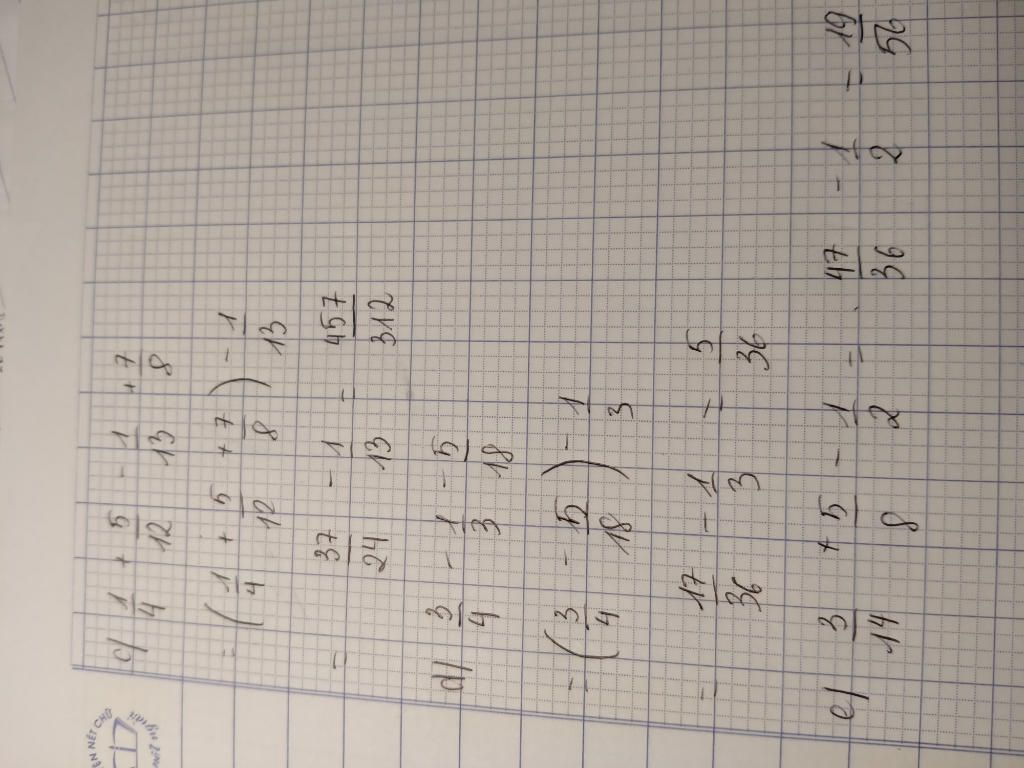 c) 1/4 + 5/12 - 1/13 + 7/8
= (1/4 + 5/12 + 7/8) - 1/13
= 37/24 - 1/13 = 457/312
d) 3/4 - 1/3 - 5/18
= (3/4 - 5/18) - 1/3
= 17/36 - 1/3 = 5/36
e) 3/14 + 5/8 - 1/2 = 47/36 - 1/2 = 19/56